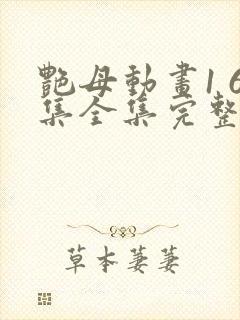 艷母動畫1 6
集全集完整
草本萋萋